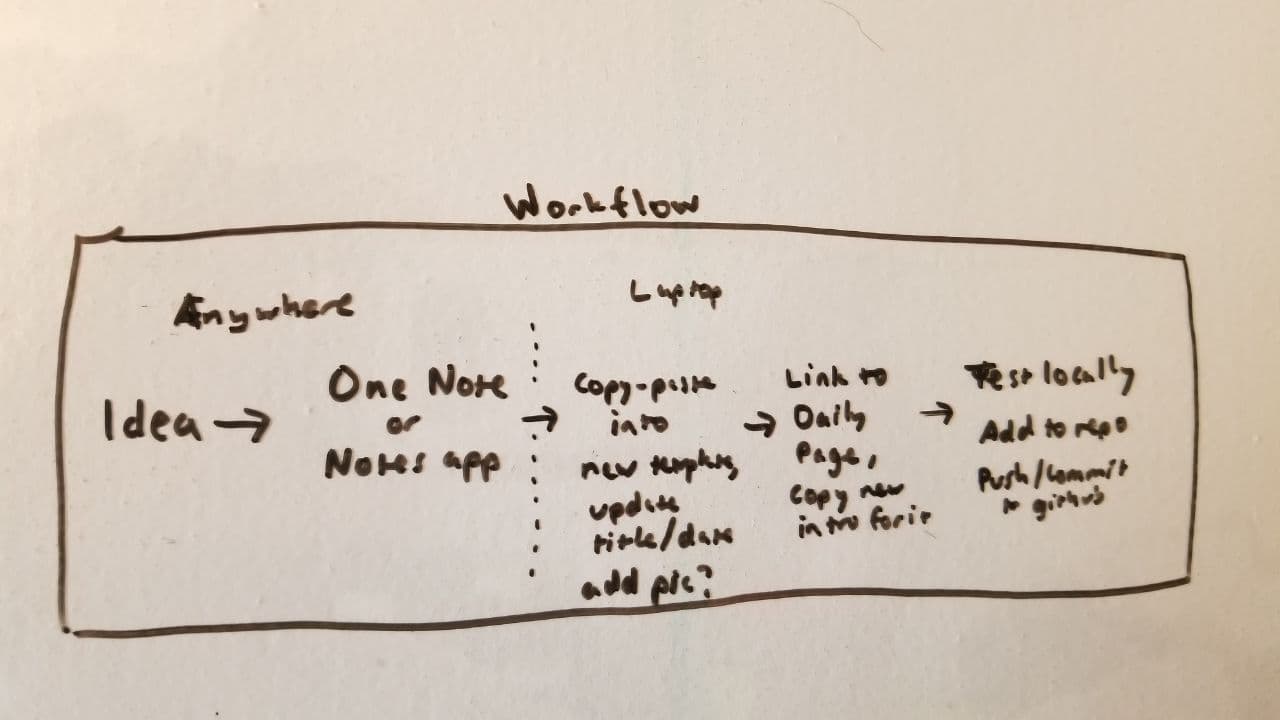 Workflow
Anywhere
Laptop
Idea →
One Note
or
Notes app
→
Copy-paste
into
new template,
update
title/date
add pic?
→
Link to
Daily
Page,
copy new
intro for it
→
Test locally
Add to repo
Push/commit
to github